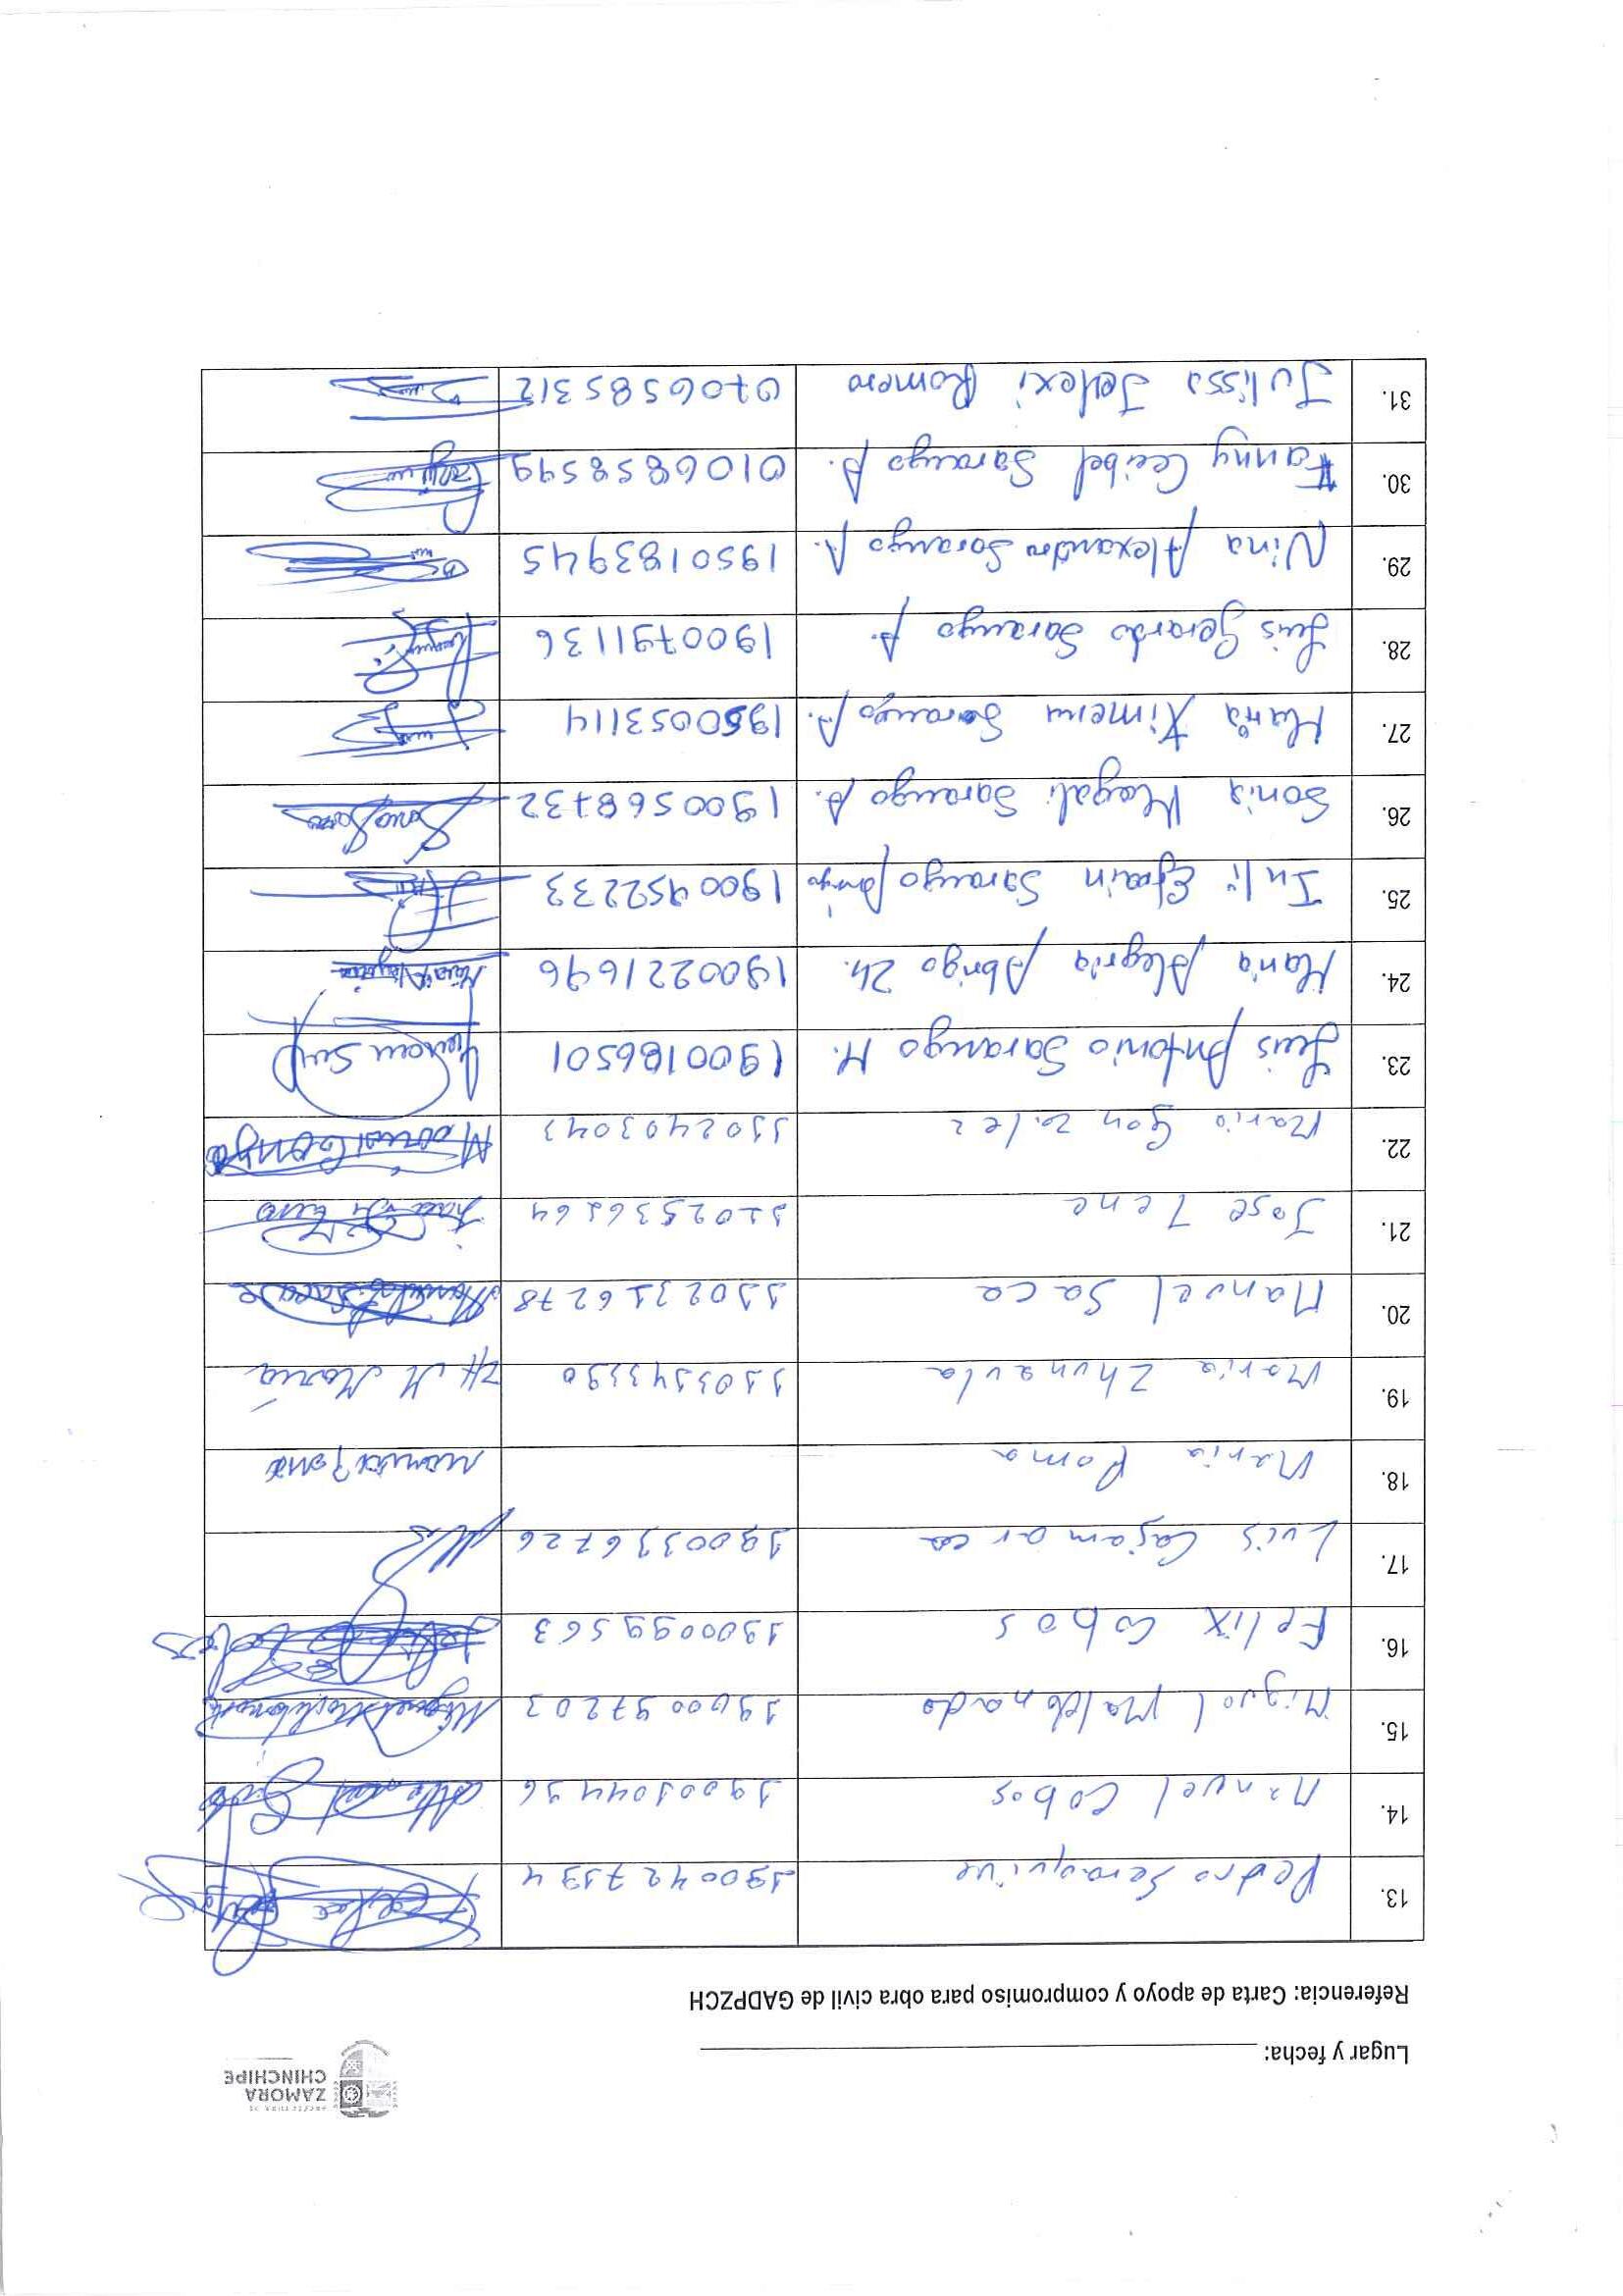 PREFECTURA DE
ZAMORA
CHINCHIPE
Lugar y fecha:
Referencia: Carta de apoyo y compromiso para obra civil de GADPZCH
13. Pedro Saraquive 1900427194
14. Manuel Cobos 1900104496
15. Miguel Maldonado 1900097203
16. Felix Cobos 1900099563
17. Luis Cajamarca 1900336726
18. Maria Poma
19. Maria Zhunaula 1103143390 ZH M María
20. Manuel Saca 1102316278
21. Jose Tene 1102536164
22. Mario Gonzalez 1102403043
23. Luis Antonio Sarango M. 1900186501
24. María Alegría Abrigo Zh. 1900221696
25. Inti Efrain Sarango Abrigo 1900452233
26. Sonia Magali Sarango A. 1900568732
27. María Ximena Sarango A. 1950053114
28. Luis Gerardo Sarango A. 1900791136
29. Nina Alexandra Sarango A. 1950183945
30. Fanny Ceibel Sarango A. 0106858599
31. Julissa Jellexi Romero 0706585312